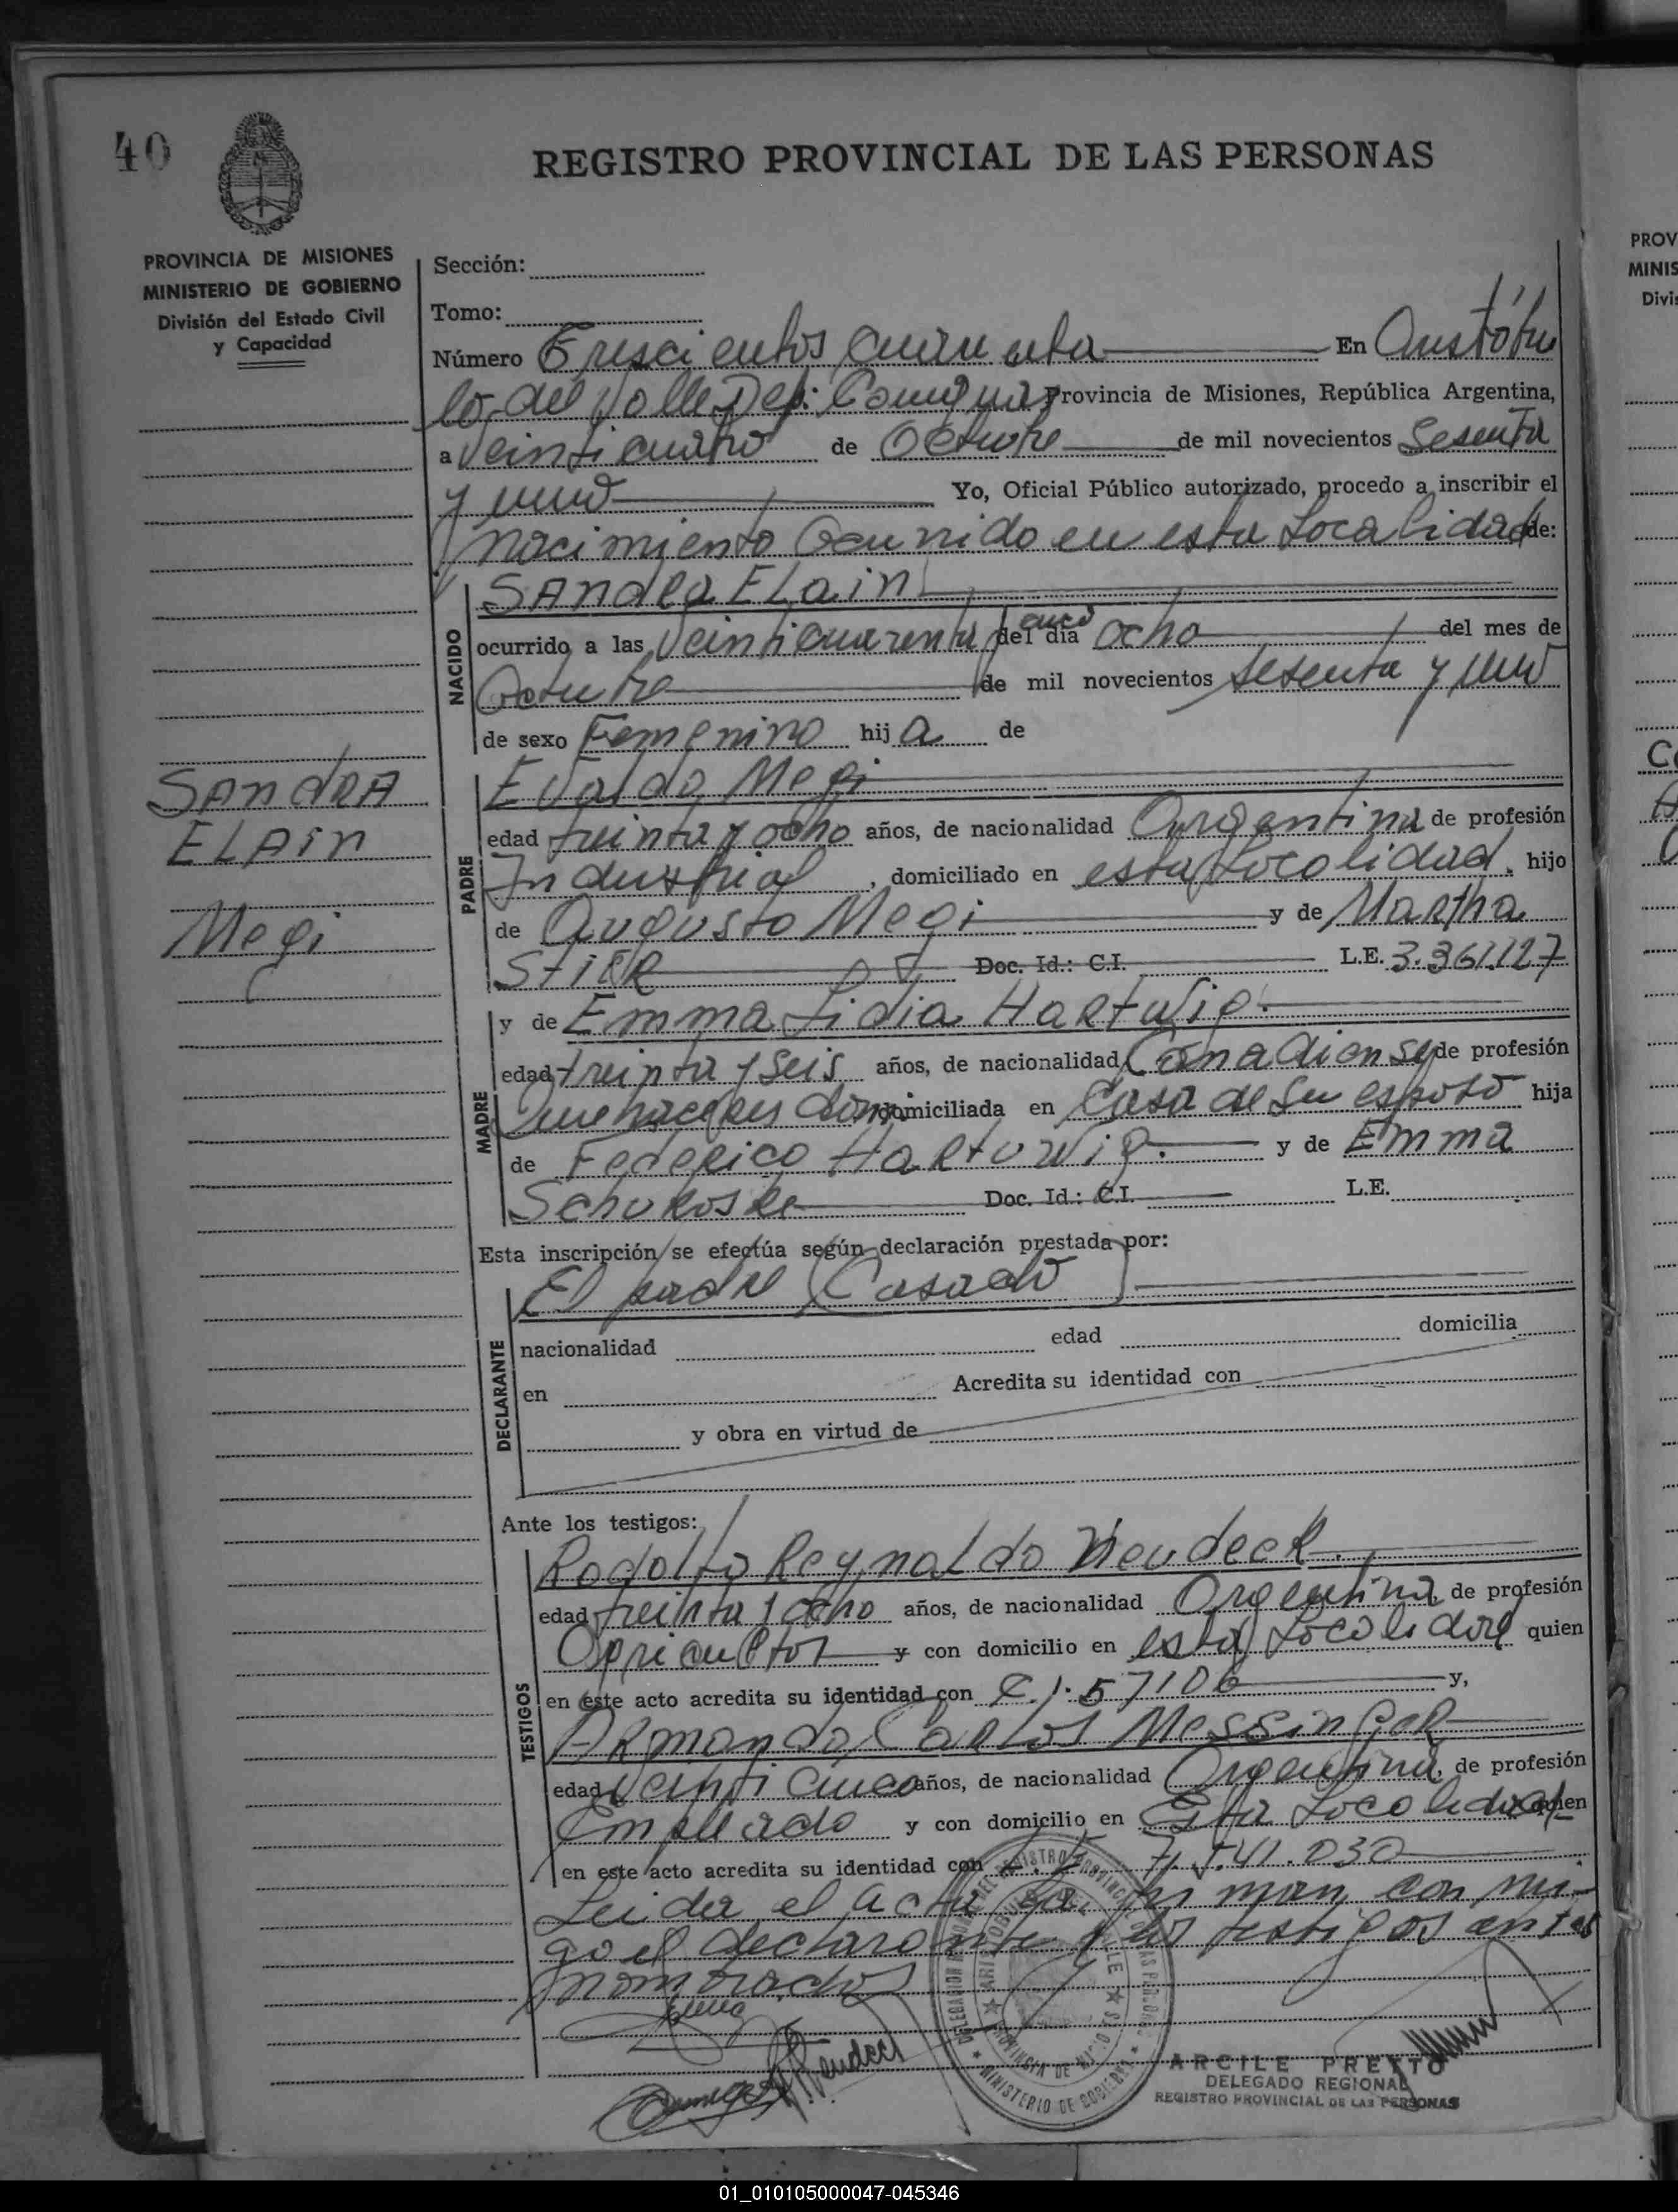 40
REGISTRO PROVINCIAL DE LAS PERSONAS
PROVINCIA DE MISIONES
MINISTERIO DE GOBIERNO
División del Estado Civil
y Capacidad
Sección:
Tomo:
Número Trescientos cuarenta En Aristóbu
lo del Valle Dep: Provincia de Misiones, República Argentina,
a veinticuatro de Octubre de mil novecientos Sesenta
y uno Yo, Oficial Público autorizado, procedo a inscribir el
nacimiento Ocurrido en esta Localidad de:
SANdRA ELain
NACIDO
ocurrido a las veinti cuarenta del día ocho del mes de
Octubre de mil novecientos sesenta y uno
de sexo Femenino hij a de
SANdRA
ELAin
Megi
PADRE
Evaldo Megi
edad treinta y ocho años, de nacionalidad Argentina de profesión
Industrial, domiciliado en esta Localidad, hijo
de Augusto Megi y de Martha
StiER Doc. Id.: C.I. L.E. 3.361.127
MADRE
y de Emma Lidia Hartwig.
edad treinta y seis años, de nacionalidad Canadiense de profesión
Quehaceres dom domiciliada en Casa de su esposo hija
de Federico Hartuwig. y de Emma
Doc. Id.: C.I. L.E.
Esta inscripción se efectúa según declaración prestada por:
El padre (Casado)
DECLARANTE
nacionalidad edad domicilia
en Acredita su identidad con
y obra en virtud de
Ante los testigos:
TESTIGOS
Rodolfo Reynaldo Neudeck.
edad treinta y ocho años, de nacionalidad Argentina, de profesión
Agricultor y con domicilio en esta Localidad quien
en este acto acredita su identidad con C.I. 57106 y,
Armando Carlos Messinger
edad Veinti Cinco años, de nacionalidad Argentina, de profesión
Empleado y con domicilio en Esta Localidad quien
en este acto acredita su identidad con L.E. 7.541.030
Leida el acta la firman con mi
go el declarante y los testigos antes
nombrados
Neudeck
DELEGACION REGISTRO PROVINCIAL DE LAS PERSONAS
ARISTOBULO DEL VALLE
PROVINCIA DE MISIONES
MINISTERIO DE GOBIERNO
ARCILE PREYTO
DELEGADO REGIONAL
REGISTRO PROVINCIAL DE LAS PERSONAS
PROV
MINIS
Divis
01_010105000047-045346